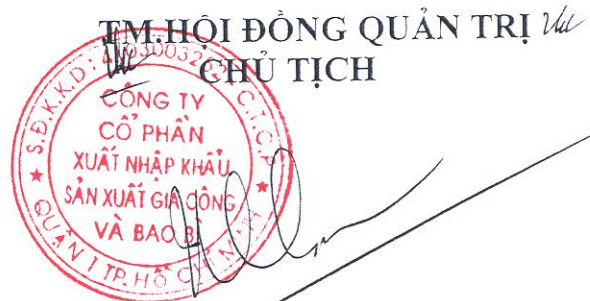 TM.HỘI ĐỒNG QUẢN TRỊ
CHỦ TỊCH
S.Đ.K.K.D: C.T.C.P
CÔNG TY
CỔ PHẦN
XUẤT NHẬP KHẨU
SẢN XUẤT GIA CÔNG
VÀ BAO BÌ
QUẬN 1 TP. HỒ CHÍ MINH